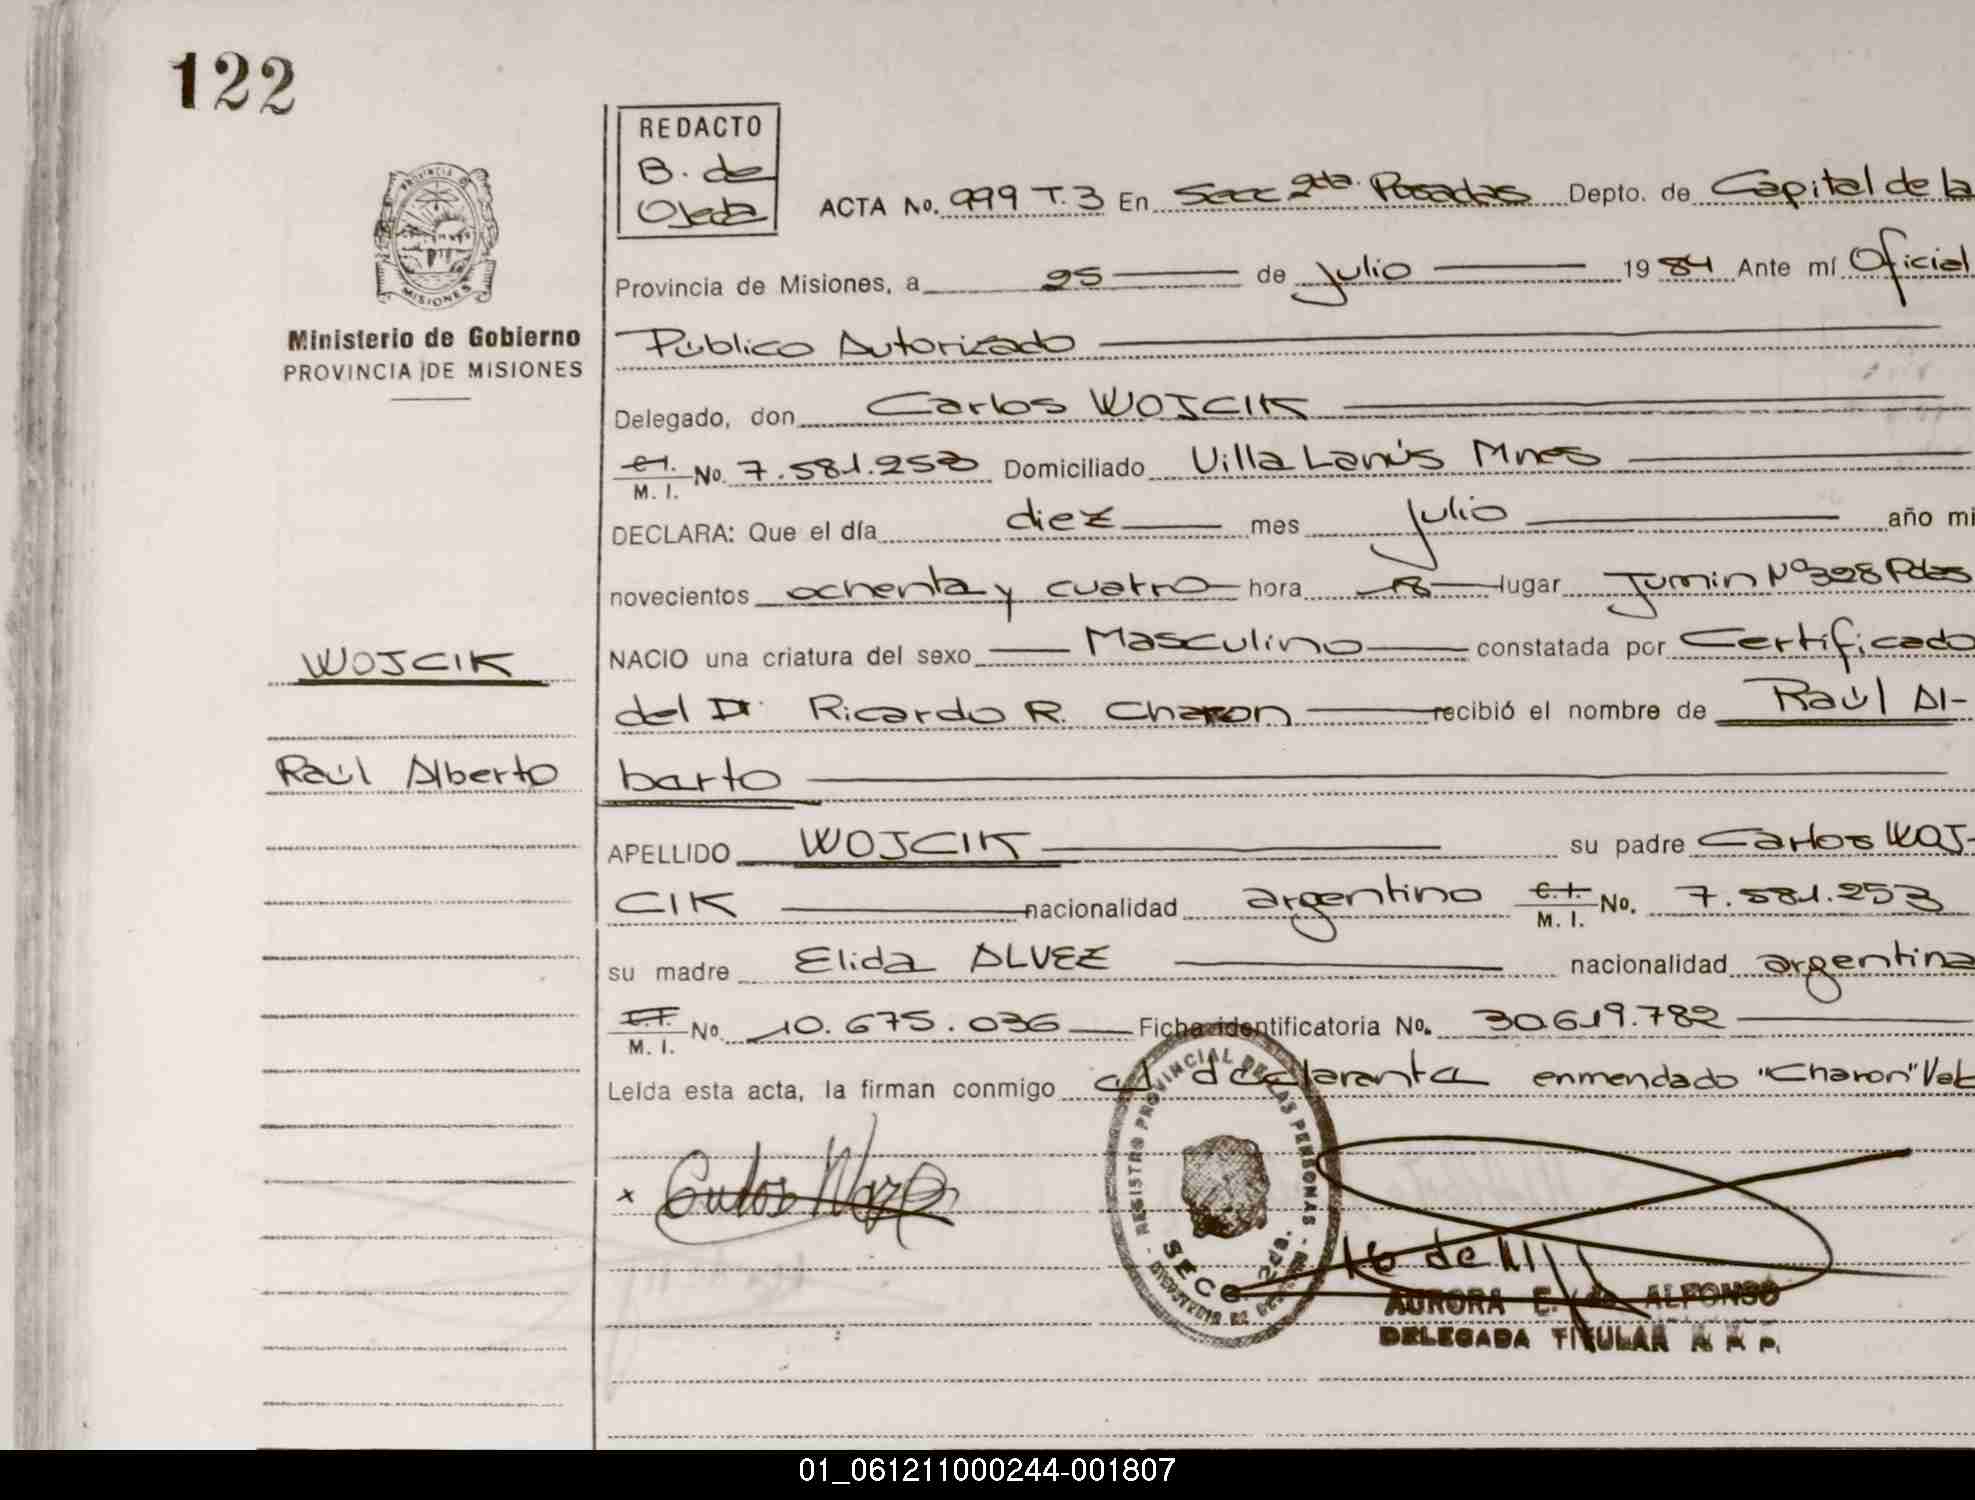 122
REDACTO
B. de
Ojeda
ACTA No. 999 T.3 En Secc 2da. Posadas Depto. de Capital de la
PROVINCIA DE
MISIONES
Provincia de Misiones, a 25 de julio 1984 Ante mí Oficial
Ministerio de Gobierno
PROVINCIA DE MISIONES
Público Autorizado
Delegado, don Carlos WOJCIK
C.I.
M. I.
No. 7.581.253 Domiciliado Villa Lanús Mnes
DECLARA: Que el día diez mes julio año mi
novecientos ochenta y cuatro hora 18 lugar Junin Nº 328 Pdas
WOJCIK
NACIO una criatura del sexo Masculino constatada por Certificado
del Dr. Ricardo R. Charon recibió el nombre de Raúl Al-
Raúl Alberto
barto
APELLIDO WOJCIK su padre Carlos WOJ-
CIK nacionalidad argentino C.I.
M. I.
No. 7.581.253
su madre Elida ALVEZ nacionalidad argentina
C.I.
M. I.
No. 10.675.036 Ficha identificatoria No. 30.619.782
Leída esta acta, la firman conmigo el declarante enmendado "Charon" Vale
x Carlos
REGISTRO PROVINCIAL DE LAS PERSONAS
SECC 2da.
16 de
AURORA E. de ALFONSO
DELEGADA TITULAR R. P.
01_061211000244-001807